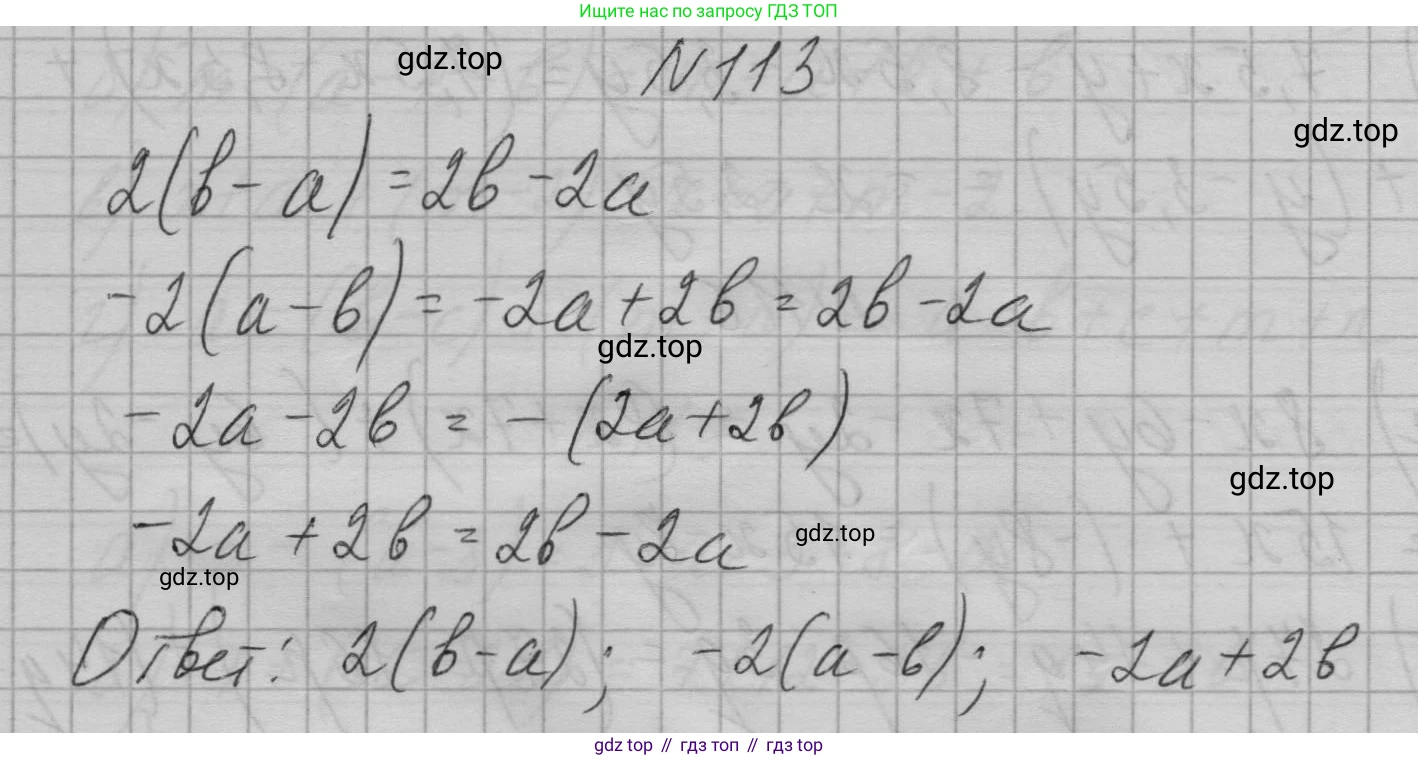 Ищите нас по запросу ГДЗ ТОП
gdz.top
N 113
gdz.top
2(b - a) = 2b - 2a
-2(a - b) = -2a + 2b = 2b - 2a
gdz.top
-2a - 2b = - (2a + 2b)
gdz.top
-2a + 2b = 2b - 2a
gdz.top
gdz.top
Ответ: 2(b - a); -2(a - b); -2a + 2b
gdz top // гдз топ // гдз top